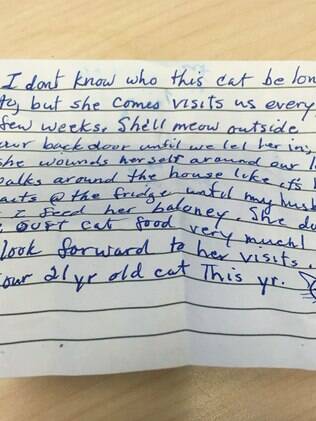 I dont know who this cat be lon
to, but she comes visits us every
few weeks. She'll meow outside
our back door until we let her in,
she wounds herself around our l
walks around the house like it's h
aits @ the fridge until my husb
I feed her baloney. She do
our cat food very much!
look forward to her visits.
our 21 yr old cat This yr.